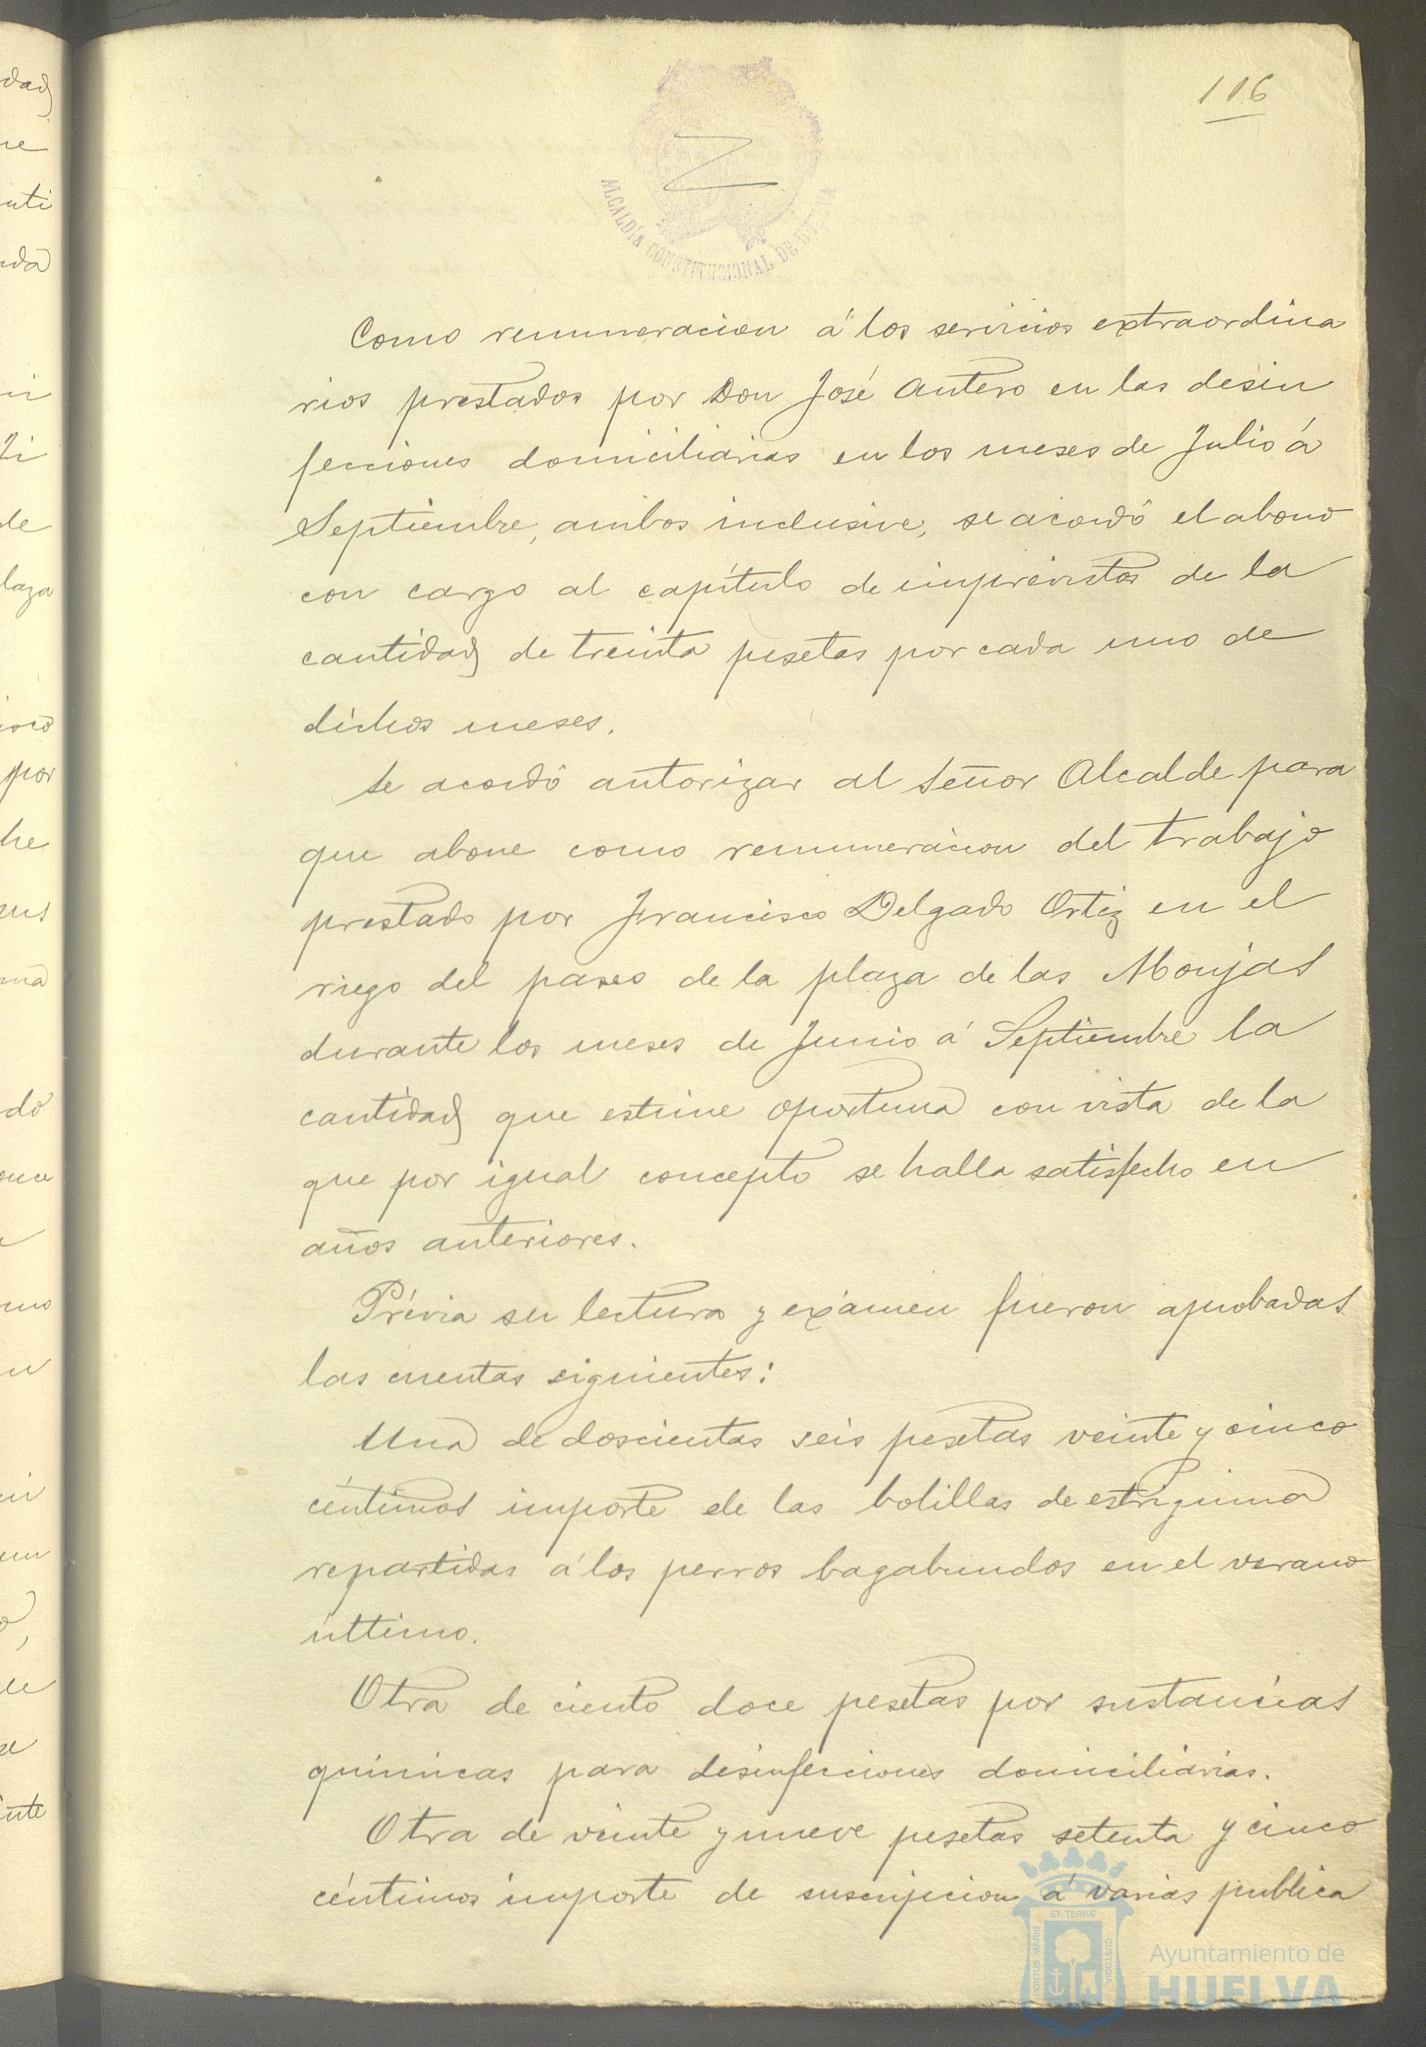 106
ALCALDÍA CONSTITUCIONAL DE HUELVA
Como remuneracion á los servicios extraordina
rios prestados por Don José Antero en las desin
fecciones domiciliarias en los meses de Julio á
Septiembre, ambos inclusive, se acordó el abono
con cargo al capítulo de imprevistos de la
cantidad de treinta pesetas por cada uno de
dichos meses.
Se acordó autorizar al Señor Alcalde para
que abone como remuneracion del trabajo
prestado por Francisco Delgado Ortiz en el
riego del paseo de la plaza de las Monjas
durante los meses de Junio á Septiembre la
cantidad que estime oportuna con vista de la
que por igual concepto se halla satisfecho en
años anteriores.
Prévia su lectura y exámen fueron aprobadas
las cuentas siguientes:
Una de doscientas seis pesetas veinte y cinco
céntimos importe de las bolillas de estriguina
repartidas á los perros bagabundos en el verano
último.
Otra de ciento doce pesetas por sustancias
químicas para desinfecciones domiciliarias.
Otra de veinte y nueve pesetas setenta y cinco
céntimos importe de suscripcion á varias publica
PORTUS MARIS ET TERRÆ CUSTODIA
Ayuntamiento de
HUELVA